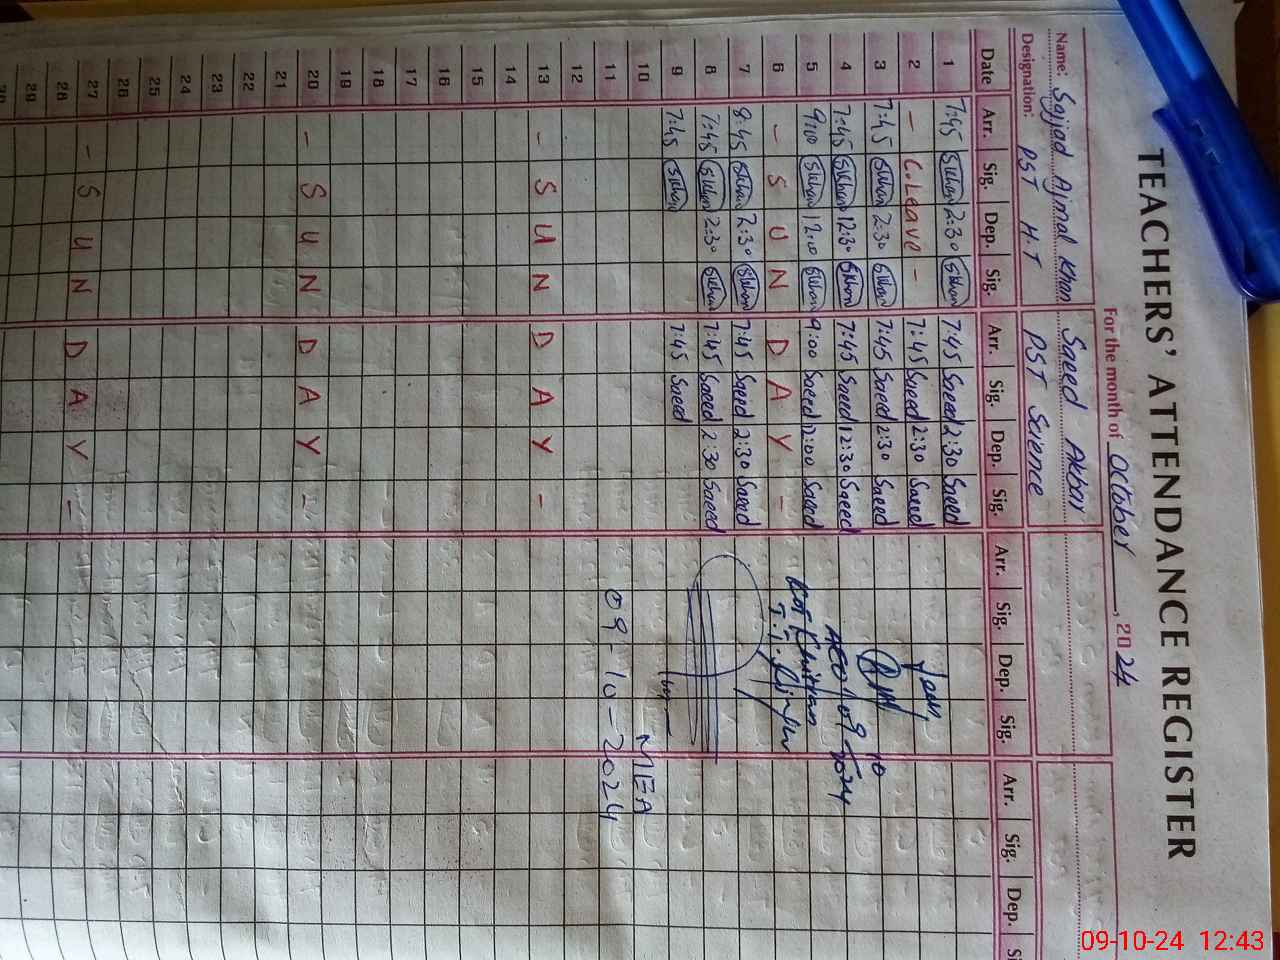 TEACHERS' ATTENDANCE REGISTER
For the month of October, 2024
Name: Sajjad Ajmal Khan Saeed Akbar
Designation: PST H.T PST Science
Date Arr. Sig. Dep. Sig. Arr. Sig. Dep. Sig. Arr. Sig. Dep. Sig. Arr. Sig. Dep.
1 7:45 SKhan 2:30 SKhan 7:45 Saeed 2:30 Saeed
2 - C.Leave - 7:45 Saeed 2:30 Saeed
3 7:45 SKhan 2:30 SKhan 7:45 Saeed 2:30 Saeed
4 7:45 SKhan 12:30 SKhan 7:45 Saeed 12:30 Saeed
5 9:00 SKhan 12:00 SKhan 9:00 Saeed 12:00 Saeed
6 - S U N D A Y -
7 8:45 SKhan 2:30 SKhan 7:45 Saeed 2:30 Saeed
8 7:45 SKhan 2:30 SKhan 7:45 Saeed 2:30 Saeed
9 7:45 SKhan 7:45 Saeed
10 MEA
11 09-10-2024
12
13 - S U N D A Y -
14
15
16
17
18
19
20 - S U N D A Y -
21
22
23
24
25
26
27 - S U N D A Y -
28
29
30
09-10-24 12:43